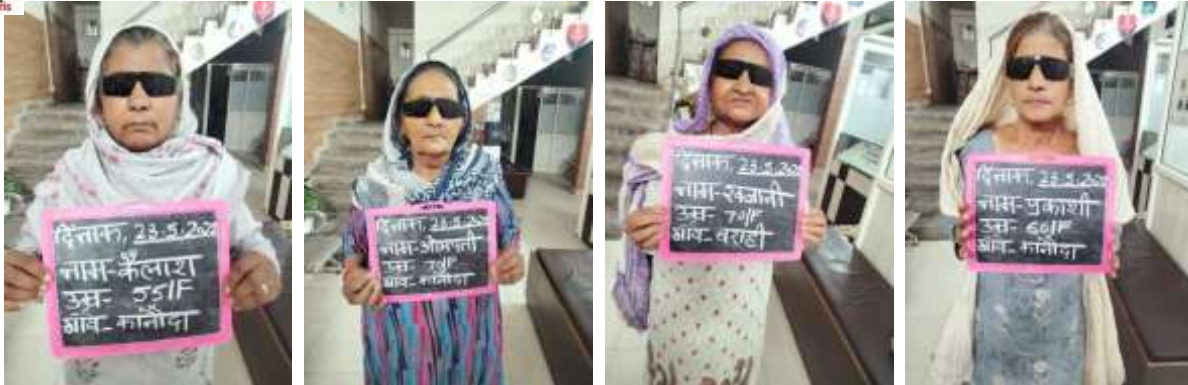 ris
दिनाक, 23.5.202
नाम-कैलाश
उम्र- 55/F
गांव-कानौदा
दिनाक, 23.5.202
नाम-ओमपती
उम्र- 70/F
गांव-कानौदा
दिनाक, 23.5.202
नाम-खजानी
उम्र- 70/F
गांव-बराही
दिनाक, 23.5.202
नाम-प्रकाशी
उम्र- 60/F
गांव-कानोदा